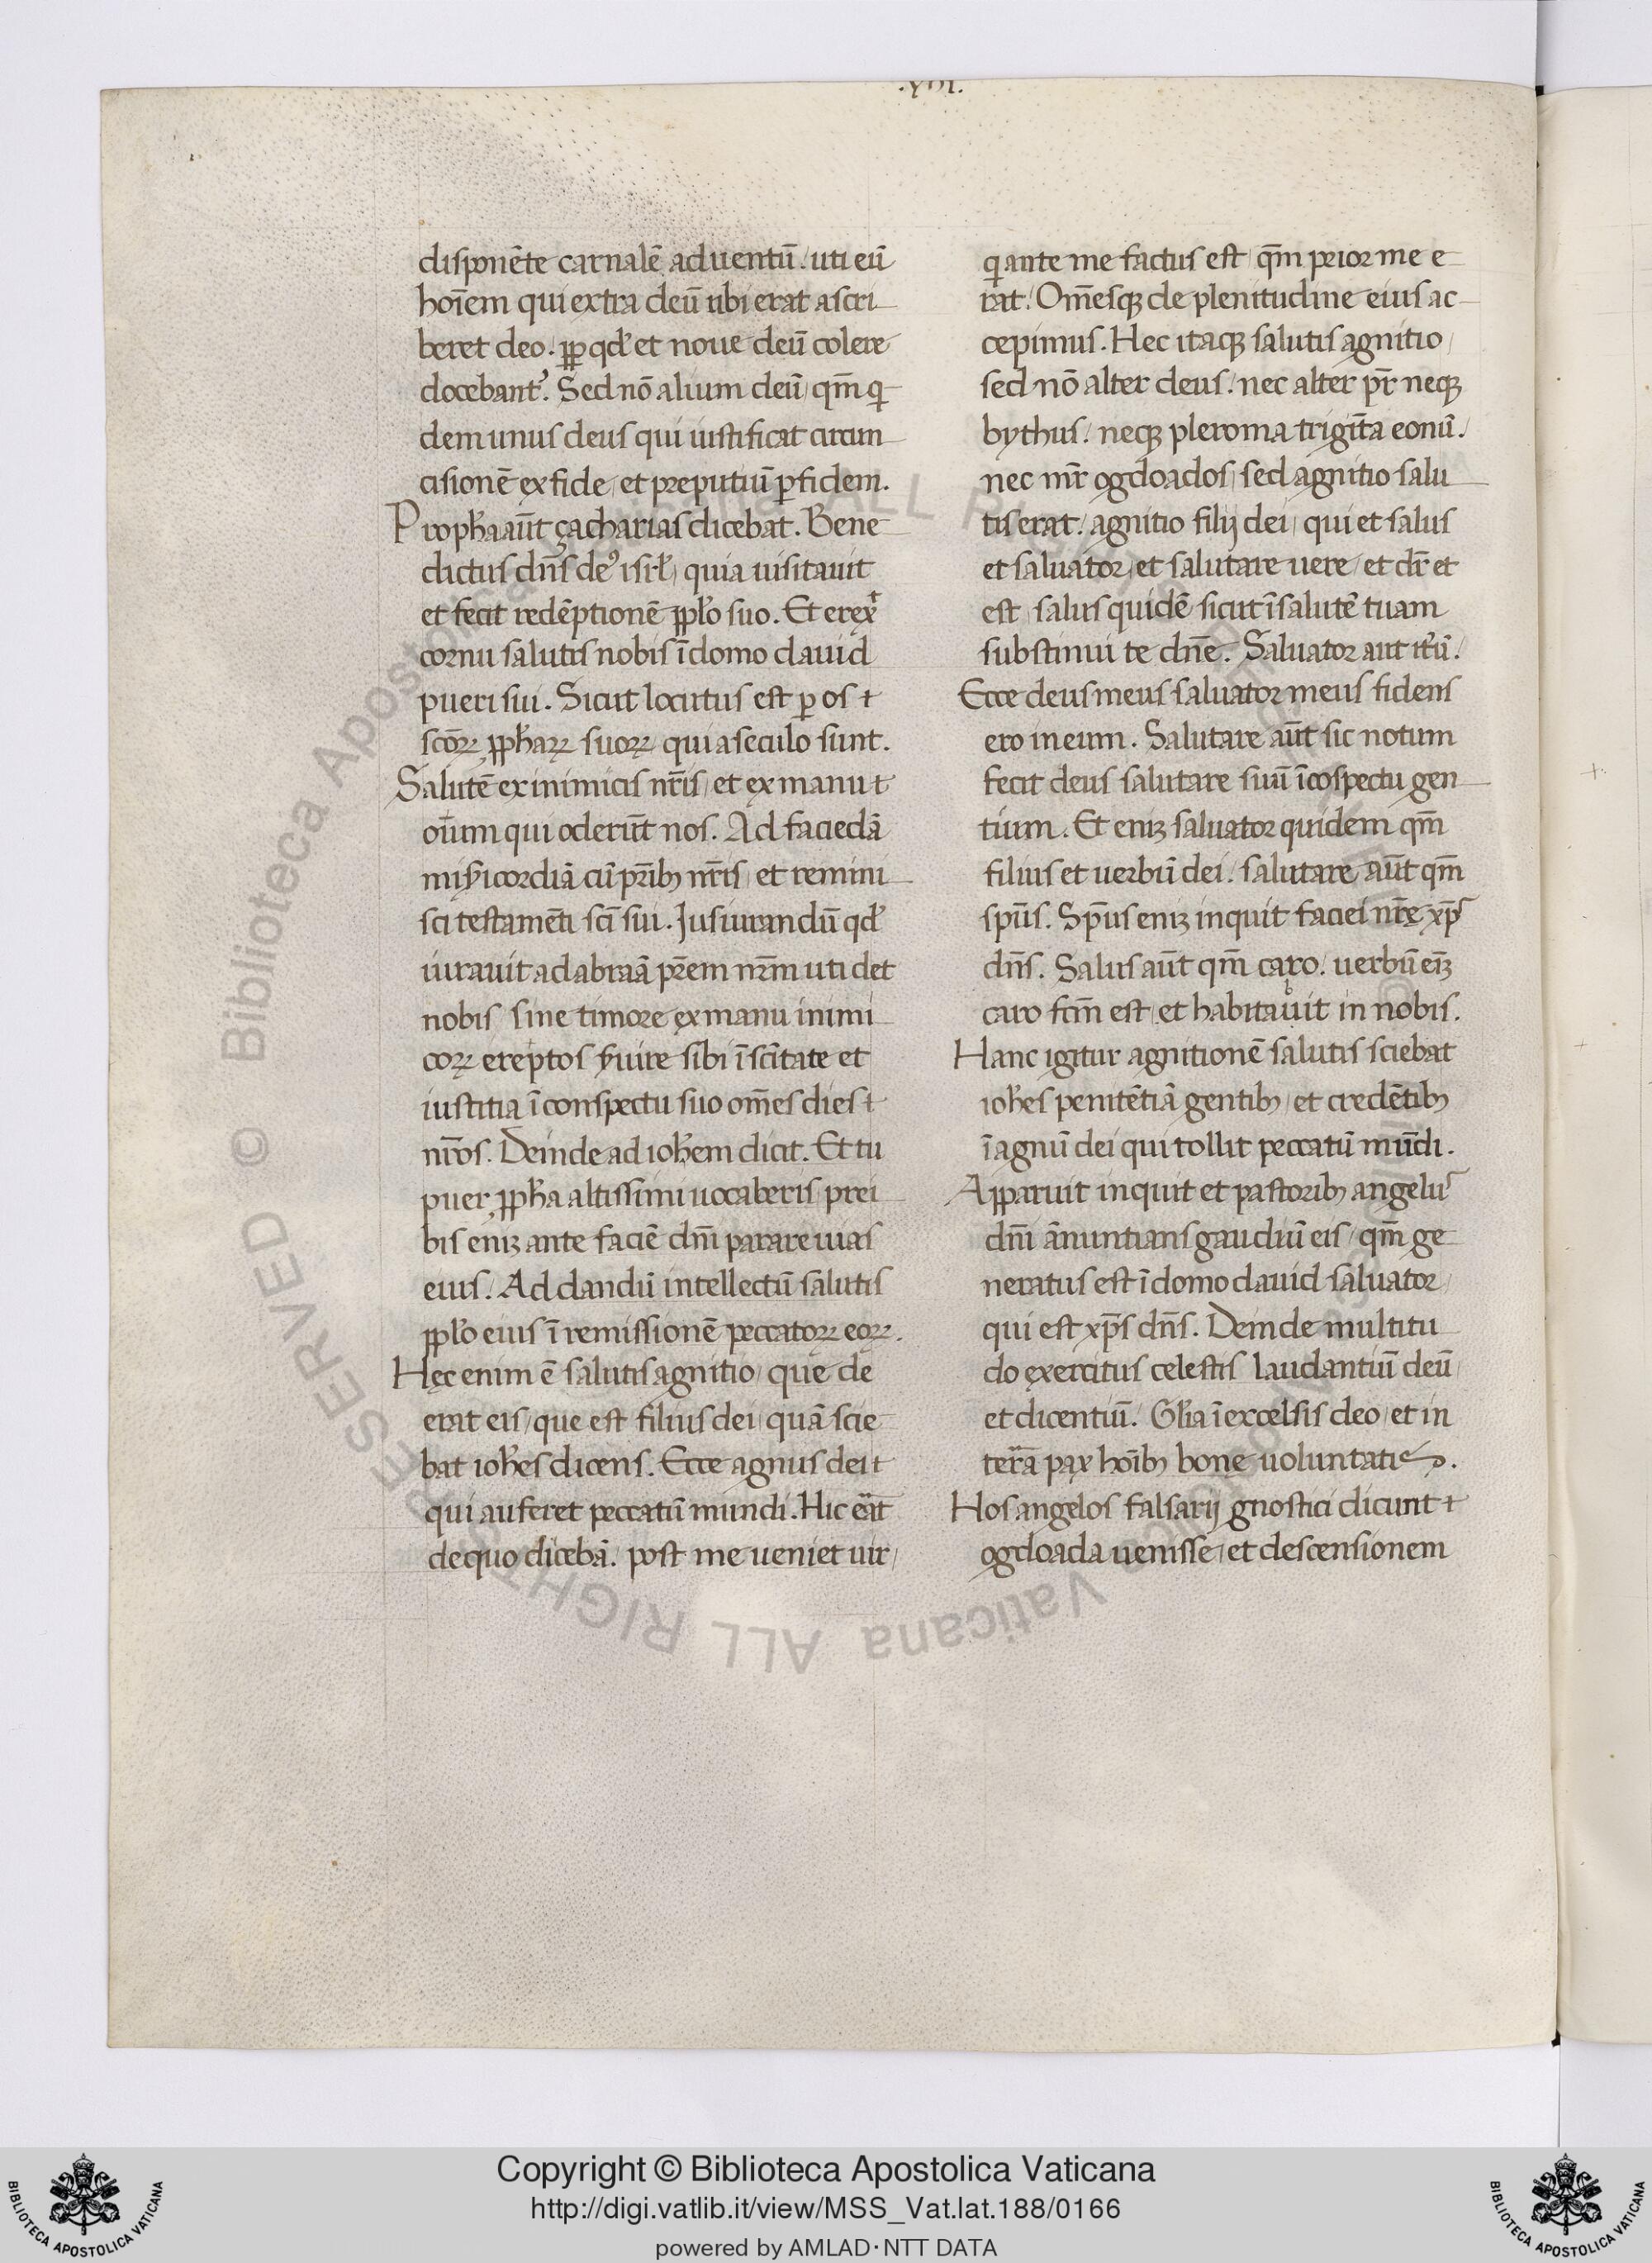 .XVI.
disponēte carnalē aduentū. uti eū
hoīem qui extra deū tibi erat ascri
beret deo. ꝓp qđ et noue deū colere
docebantᵘʳ. Sed nō alium deū, qm̄ qͥ
dem unus deus qui iustificat circum
cisionē ex fide, et preputiū ꝑ fidem.
Propħa aūt çacharias dicebat. Bene
dictus dn̄s deꝰ isrl̄, quia uisitauit
et fecit redēptionē ꝓplo suo. Et erexͭ
cornu salutis nobis ī domo dauid
pueri sui. Sicut locutus est ꝑ os
scōꝝ ꝓpħaꝝ suoꝝ, qui a seculo sunt.
Salutē ex inimicis nr̄is, et ex manu
oīum qui oderūt nos. Ad faciēdā
misͥicordiā cū pr̄ibꝫ nr̄is, et remini
sci testamēti sc̄i sui. Iusiurandū qđ
iurauit ad abraā pr̄em nr̄m uti det
nobis sine timore ex manu inimi
coꝝ ereptos s̄uire sibi ī sc̄itate et
iustitia ī conspectu suo om̄es dies
nr̄os. Deinde ad ioħem dicit. Et tu
puer, ꝓpħa altissimi uocaberis prei
bis eniꝫ ante faciē dn̄i parare uias
eius. Ad dandū intellectū salutis
ꝓplo eius ī remissionē peccatoꝝ eoꝝ.
Hęc enim ē salutis agnitio, que de
erat eis, que est filius dei, quā scie
bat ioħes dicens. Ecce agnus dei
qui auferet peccatū mundi. Hic eāt
de quo dicebā. post me ueniet uir,
qͥ ante me factus est, qm̄ prior me e
rat. Om̄esqꝫ de plenitudine eius ac
cepimus. Hec itaqꝫ salutis agnitio,
sed nō alter deus. nec alter pr̄ neqꝫ
bythus. neqꝫ pleroma trigīta eonū.
nec mr̄ ogdoados, sed agnitio salu
tis erat. agnitio filij dei, qui et salus
et saluator, et salutare uere, et dr̄ et
est, salus quidē sicut ī salutē tuam
substinui te dn̄e. Saluator aut̄ it̄ū.
Ecce deus meus saluator meus fidens
ero in eum. Salutare aūt sic notum
fecit deus salutare suū ī cospectu gen
tium. Et eniꝫ saluator quidem qm̄
filius et uerbū dei. salutare aūt qm̄
sp̄us. Sp̄us eniꝫ inquit faciei nr̄ę xp̄s
dn̄s. Salus aūt qm̄ caro. uerbū eīꝫ
caro fcm̄ est, et habitauit in nobis.
Hanc igitur agnitionē salutis sciebat
ioħes penitētiā gentibꝫ, et credētibꝫ
ī agnū dei qui tollit peccatū mūdi.
Apparuit inquit et pastoribꝫ angelus
dn̄i ānuntians gaudiū eis, qm̄ ge
neratus est ī domo dauid saluator,
qui est xp̄s dn̄s. Deinde multitu
do exercitus celestis laudantiū deū,
et dicentiū. Gl̄ia ī excelsis deo, et in
terā pax hoībꝫ bonę uoluntatis.
Hos angelos falsarij gnostici dicunt
ogdoada uenisse, et descensionem
© Biblioteca Apostolica Vaticana ALL RIGHTS RESERVED
Copyright © Biblioteca Apostolica Vaticana
http://digi.vatlib.it/view/MSS_Vat.lat.188/0166
powered by AMLAD·NTT DATA
BIBLIOTECA APOSTOLICA VATICANA
BIBLIOTECA APOSTOLICA VATICANA